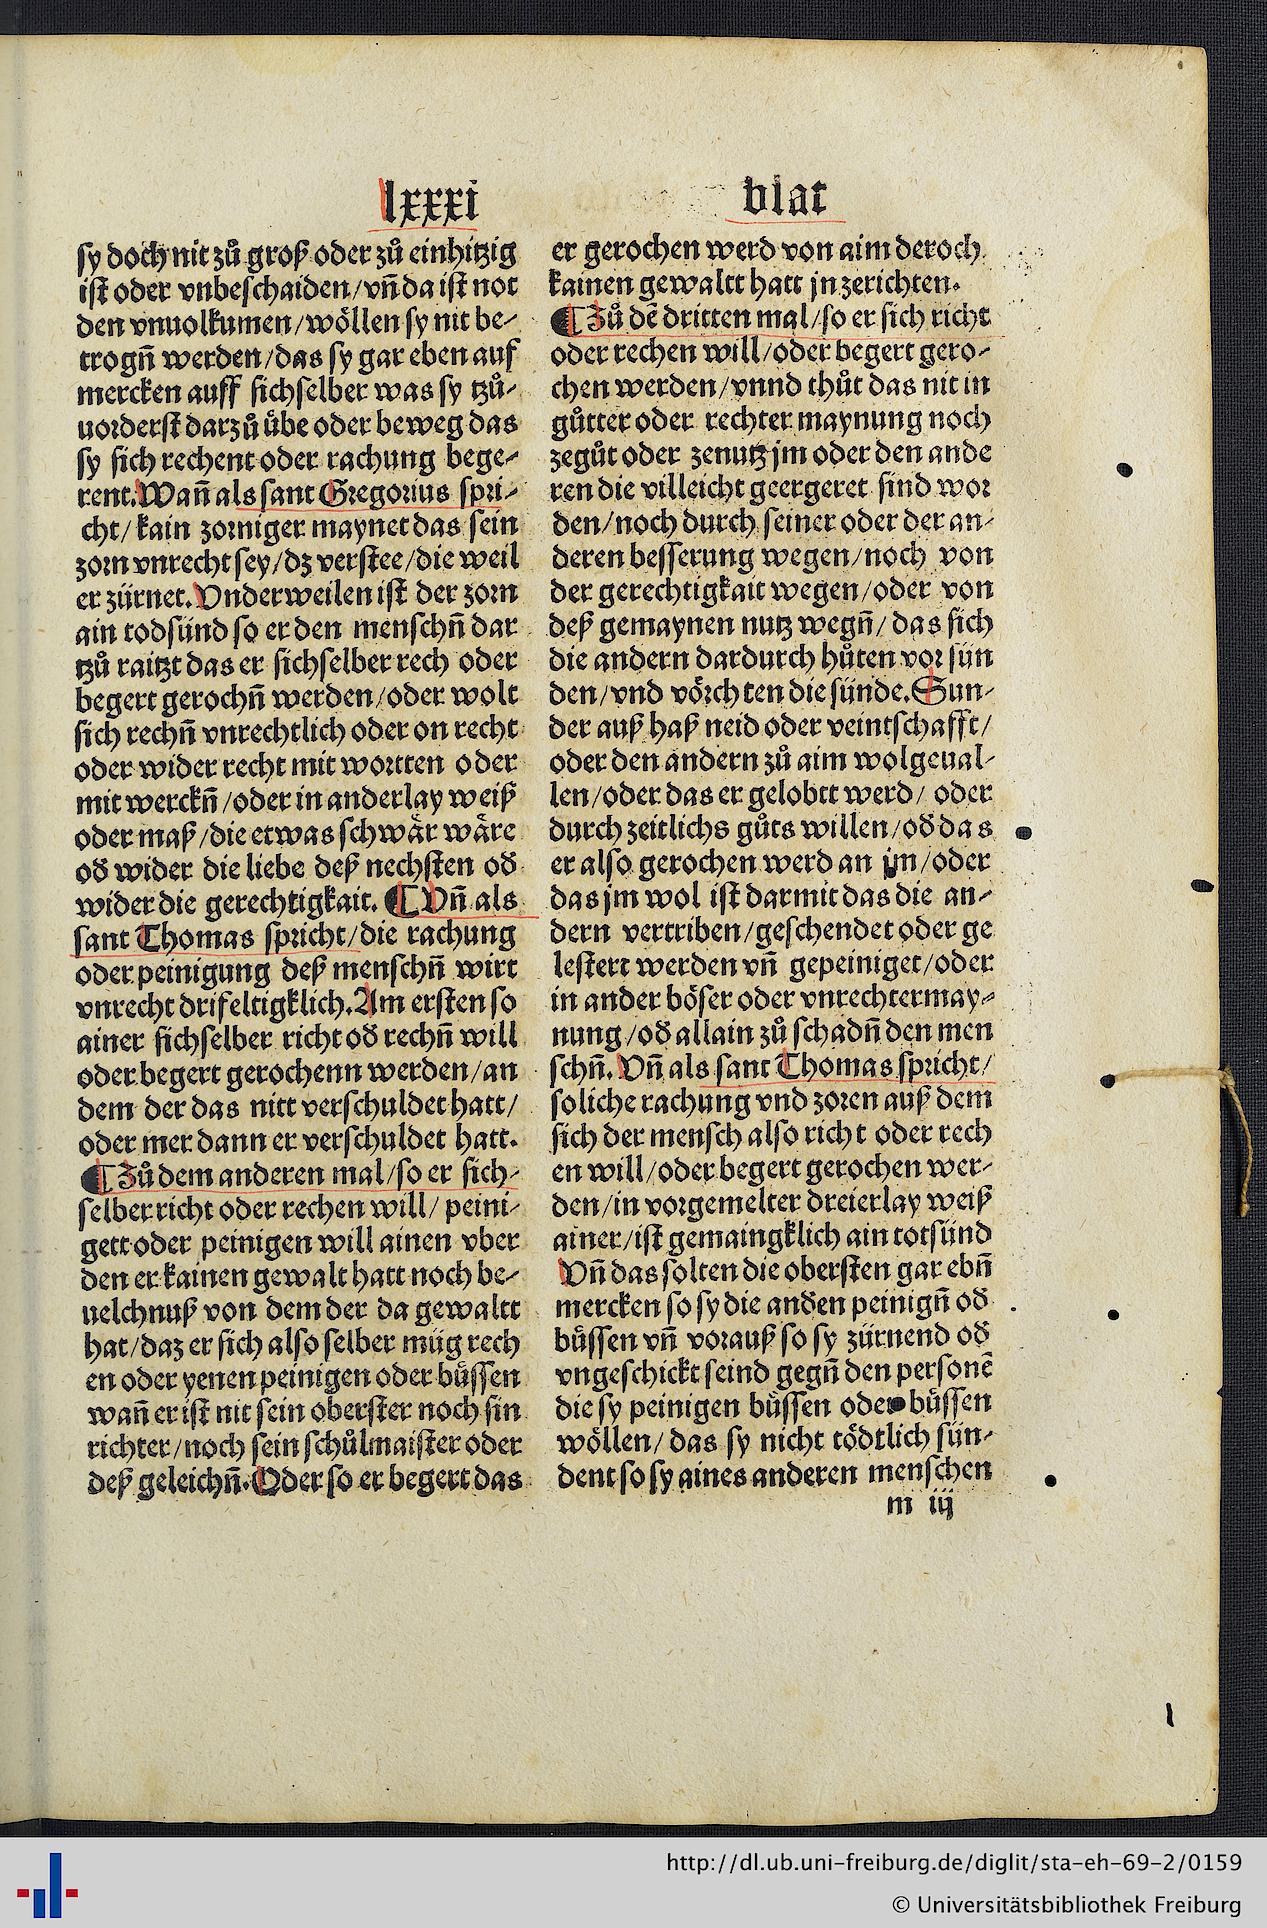 lxxxi
blat
sy doch nit zů groß oder zů einhitzig
ist oder vnbeschaiden/vn̄ da ist not
den vnuolkumen/wöllen sy nit be⸗
trogn̄ werden/das sy gar eben auf
mercken auff sichselber was sy tzů⸗
uorderst darzů übe oder beweg das
sy sich rechent oder rachung bege⸗
rent. Wan̄ als sant Gregorius spri⸗
cht/kain zorniger maynet das sein
zorn vnrecht sey/dz verstee/die weil
er zürnet. Vnderweilen ist der zorn
ain todsünd so er den menschn̄ dar
tzů raitzt das er sichselber rech oder
begert gerochn̄ werden/oder wolt
sich rechn̄ vnrechtlich oder on recht
oder wider recht mit wortten oder
mit werckn̄/oder in anderlay weiß
oder maß/die etwas schwär wäre
od̛ wider die liebe deß nechsten od̛
wider die gerechtigkait. ¶ Vn̄ als
sant Thomas spricht/die rachung
oder peinigung deß menschn̄ wirt
vnrecht drifeltigklich. Am ersten so
ainer sichselber richt od̛ rechn̄ will
oder begert gerochenn werden/an
dem der das nitt verschuldet hatt/
oder mer dann er verschuldet hatt.
¶ Zů dem anderen mal/so er sich⸗
selber richt oder rechen will/peini⸗
gett oder peinigen will ainen vber
den er kainen gewalt hatt noch be⸗
uelchnuß von dem der da gewaltt
hat/daz er sich also selber müg rech
en oder yenen peinigen oder büssen
wan̄ er ist nit sein oberster noch sin
richter/noch sein schůlmaister oder
deß geleichn̄. Oder so er begert das
er gerochen werd von aim der och
kainen gewaltt hatt jn zerichten.
¶ Zů dē dritten mal/so er sich richt
oder rechen will/oder begert gero⸗
chen werden/vnnd thůt das nit in
gůtter oder rechter maynung noch
zegůt oder zenutz jm oder den ande
ren die villeicht geergeret sind wor
den/noch durch seiner oder der an⸗
deren besserung wegen/noch von
der gerechtigkait wegen/oder von
deß gemaynen nutz wegn̄/das sich
die andern dardurch hůten vor sün
den/vnd vörchten die sünde. Sun⸗
der auß haß neid oder veintschafft/
oder den andern zů aim wolgeual⸗
len/oder das er gelobtt werd/oder
durch zeitlichs gůts willen/od̛ das
er also gerochen werd an jm/oder
das jm wol ist darmit das die an⸗
dern vertriben/geschendet oder ge
lestert werden vn̄ gepeiniget/oder
in ander böser oder vnrechter may⸗
nung/od̛ allain zů schadn̄ den men
schn̄. Vn̄ als sant Thomas spricht/
soliche rachung vnd zoren auß dem
sich der mensch also richt oder rech
en will/oder begert gerochen wer⸗
den/in vorgemelter dreierlay weiß
ainer/ist gemaingklich ain totsünd
Vn̄ das solten die obersten gar ebn̄
mercken so sy die anden peinign̄ od̛
büssen vn̄ vorauß so sy zürnend od̛
vngeschickt seind gegn̄ den personē
die sy peinigen büssen oder büssen
wöllen/das sy nicht tödtlich sün⸗
dent so sy aines anderen menschen
m iij
http://dl.ub.uni-freiburg.de/diglit/sta-eh-69-2/0159
© Universitätsbibliothek Freiburg